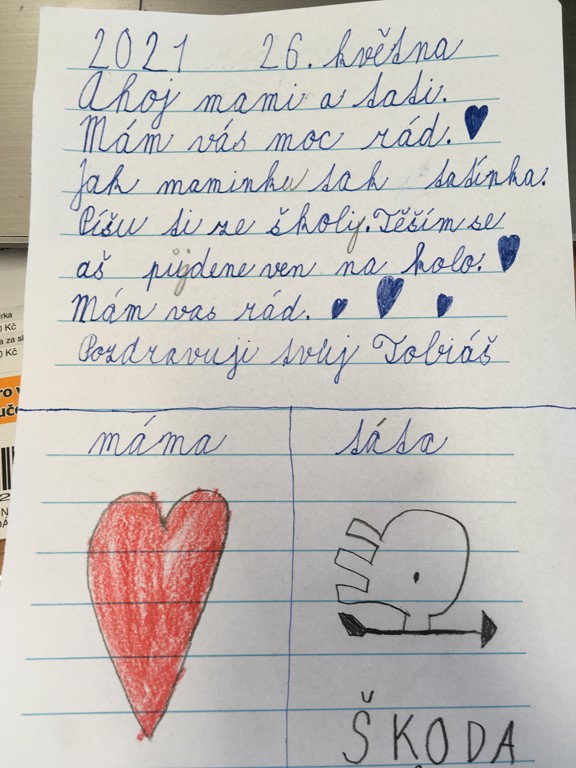 2021 26. května
Ahoj mami a tati.
Mám vás moc rád.
Jak maminku tak tatínka.
Píšu ti ze školy. Těším se
aš půjdene ven na kolo.
Mám vas rád.
Pozdravuji tvůj Tobiáš
máma táta
ŠKODA